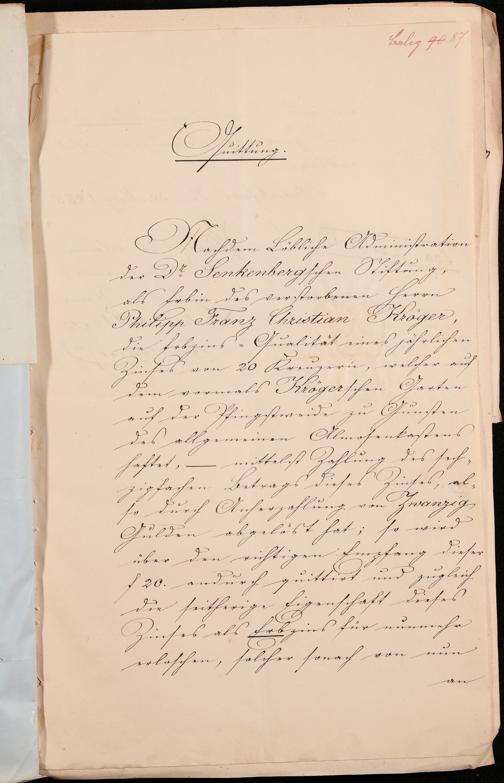 Beleg 90 87
Quittung.
Nachdem Löbliche Administration
der Dr. Senkenberg'schen Stiftung,
als Erbin des verstorbenen Herrn
Philipp Franz Christian Kröger,
die Erbzins-Qualität eines jährlichen
Zinses von 20 Kreuzern, welcher auf
dem vormals Kröger'schen Garten
auf der Pfingstweide zu Gunsten
des allgemeinen Almosenkastens
haftet, — mittelst Zahlung des sech-
zigfachen Betrags dieses Zinses, al-
so durch Anherzahlung von Zwanzig
Gulden abgelöst hat; so wird
über den richtigen Empfang dieser
f 20. andurch quittirt und zugleich
die seitherige Eigenschaft dieses
Zinses als Erbzins für nunmehr
erloschen, solcher sonach von nun
an